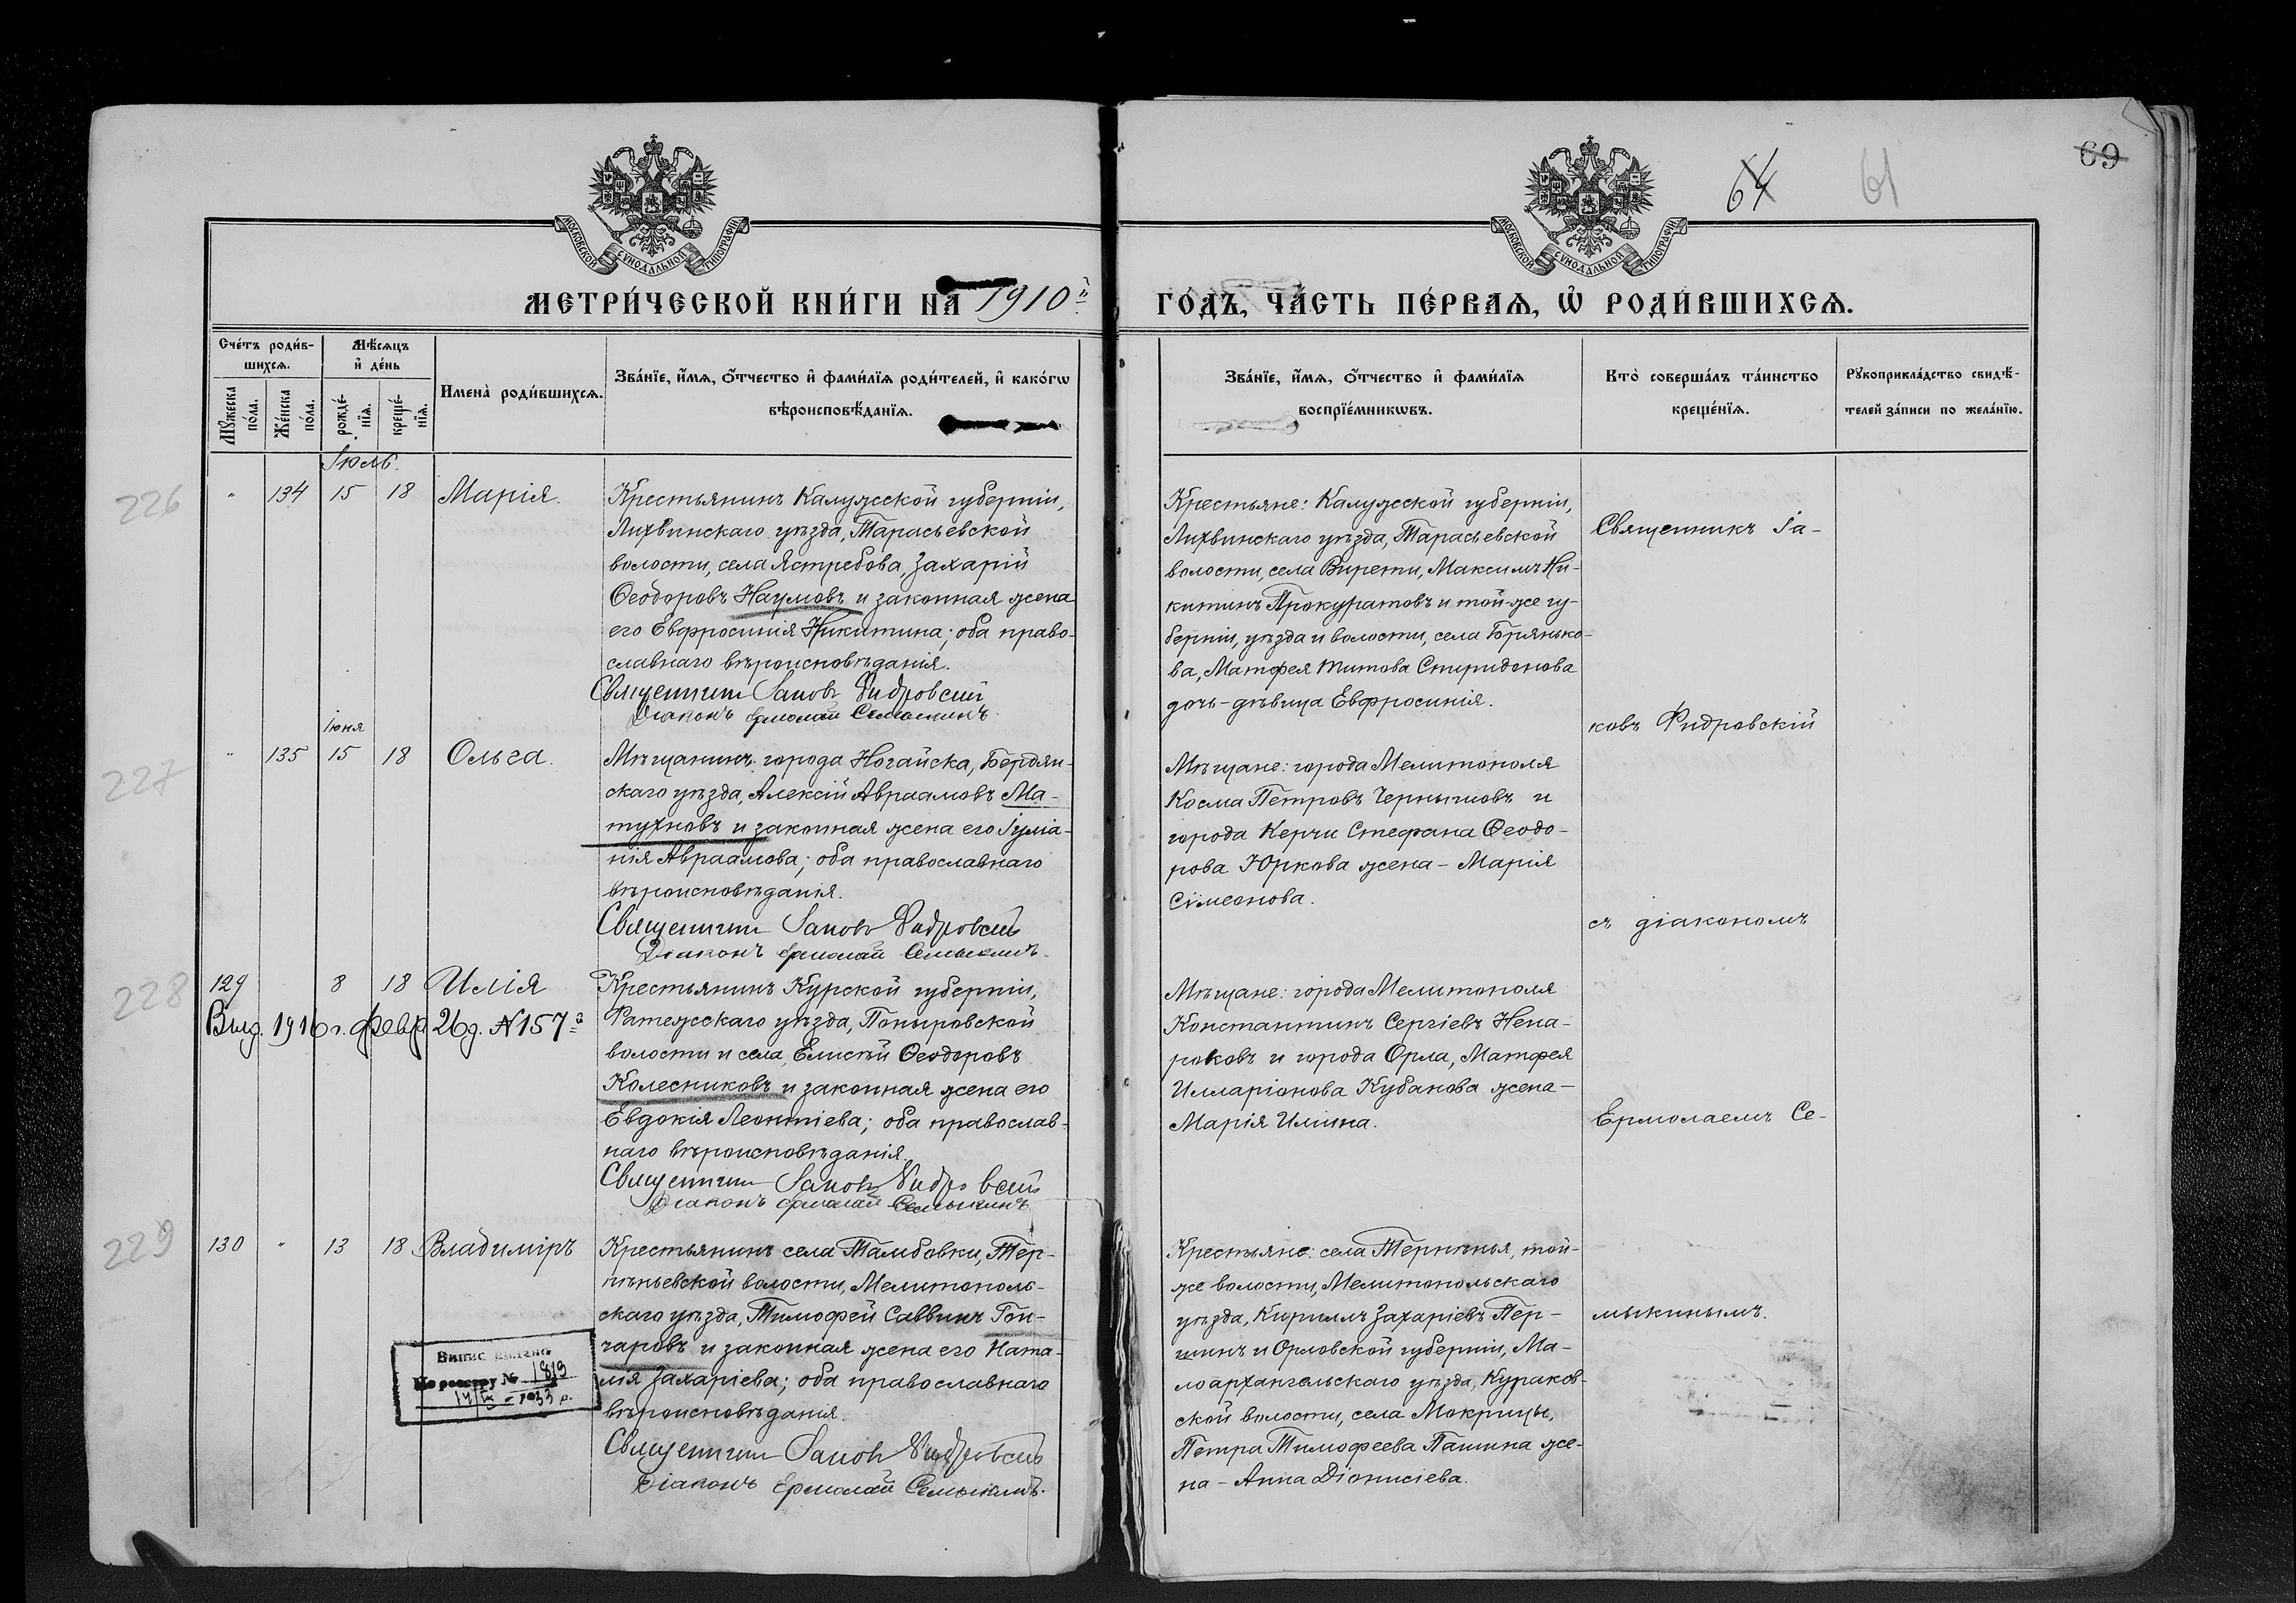 69
64
61
МОСКОВСКОЙ СѴНОДАЛЬНОЙ ТИПОГРАФІИ
МОСКОВСКОЙ СѴНОДАЛЬНОЙ ТИПОГРАФІИ
МЕТРИ́ЧЕСКОЙ КНИ́ГИ НА 1910й
ГО́ДЪ, ЧА́СТЬ ПЕ́РВАѦ, Ѡ҆ РОДИ́ВШИХСѦ.
Сче́тъ роди́в-
шихсѧ.
Мꙋжеска по́ла.
Же́нска по́ла.
Мѣ́сѧцъ
и҆ де́нь
рожде́-
нїѧ.
креще́-
нїѧ.
Имена̀ роди́вшихсѧ.
Зва́нїе, и҆́мѧ, ѻ҆́тчество и҆ фами́лїѧ роди́телей, и҆ како́гѡ
вѣроисповѣ́данїѧ.
Зва́нїе, и҆́мѧ, ѻ҆́тчество и҆ фами́лїѧ
воспрїе́мникѡвъ.
Кто̀ соверша́лъ та́инство
креще́нїѧ.
Рꙋкоприкла́дство свидѣ́-
телей за́писи по жела́нїю.
226
" 134 15 18 Марія.
Крестьянинъ Калужской губерніи,
Лихвинскаго уѣзда, Тарасьевской
волости, села Ястребова, Захарій
Ѳеодоровъ Наумовъ и законная жена
его Евфросинія Никитина; оба право-
славнаго вѣроисповѣданія.
Священникъ Іаковъ Фидровскій
Діаконъ Ермолай Семыкинъ.
Крестьяне: Калужской губерніи,
Лихвинскаго уѣзда, Тарасьевской
волости, села Вирети, Максимъ Ни-
китинъ Прокуратовъ и той-же гу-
берніи, уѣзда и волости, села Горянько-
ва, Матфея Титова Спиридонова
дочь-дѣвица Евфросинія.
Священникъ Іа-
ковъ Фидровскій
съ діакономъ
Ермолаемъ Се-
мыкинымъ.
227
іюня
" 135 15 18 Ольга.
Мѣщанинъ города Ногайска, Бердян-
скаго уѣзда, Алексій Авраамовъ Ма-
тухновъ и законная жена его Іуліа-
нія Авраамова; оба православнаго
вѣроисповѣданія.
Священникъ Іаковъ Фидровскій
Діаконъ Ермолай Семыкинъ.
Мѣщане: города Мелитополя
Косма Петровъ Чернышовъ и
города Керчи Стефана Ѳеодо-
рова Юркова жена - Марія
Сѵмеонова.
228
129 8 18 Илія
Выд. 1916 г. февр. 26 д. N 157й
Крестьянинъ Курской губерніи,
Фатежскаго уѣзда, Поныровской
волости и села, Елисѣй Ѳеодоровъ
Колесниковъ и законная жена его
Евдокія Леонтіева; оба православ-
наго вѣроисповѣданія.
Священникъ Іаковъ Фидровскій
Діаконъ Ермолай Семыкинъ
Мѣщане: города Мелитополя
Константинъ Сергіевъ Непа-
роковъ и города Орла, Матфея
Илларіонова Кубанова жена -
Марія Илiина.
229
130 " 13 18 Владиміръ
Крестьянинъ села Тамбовки, Тер-
пѣньевской волости, Мелитополь-
скаго уѣзда, Тимофей Саввинъ Гон-
чаровъ и законная жена его Ната-
лія Захаріева; оба православнаго
вѣроисповѣданія.
Священникъ Іаковъ Фидровскій
Діаконъ Ермолай Семыкинъ.
Крестьяне: села Терпѣнья, той-
же волости, Мелитопольскаго
уѣзда, Кириллъ Захаріевъ Пер-
шинъ и Орловской губерніи, Ма-
лоархангельскаго уѣзда, Кураков-
ской волости, села Мокрицы,
Петра Тимофеева Пашина же-
на - Анна Діонисіева.
Випис видано
По реестру № 1819
14/IX - 1933 р.